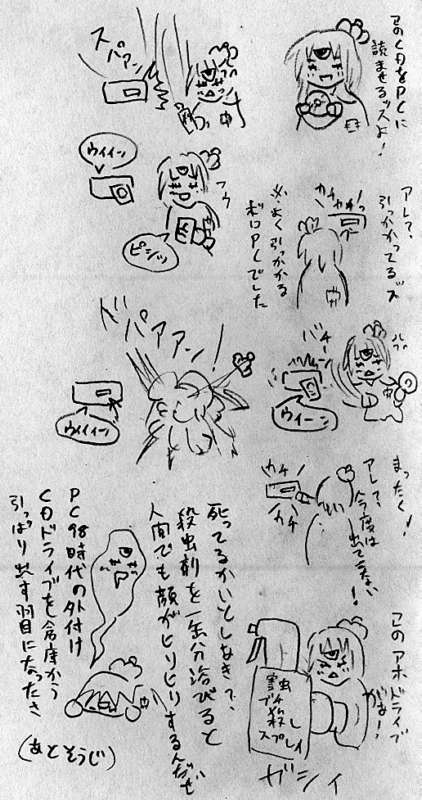 このCDをPCに
読ませるッスよ!
アレ?、
引っかかってるッス
カチカチッ
※よく引っかかる
ボロPCでした
バチーン
ウィーン
まったく!
アレ?、今度は
出てこない!
カチ
カチ
このアホドライブ
がぁ!
害虫
ブチ
殺し
スプレイ
ガシィ
スパアン
ウィイィン
フゥ
ピシッ
ドバアアン!
ウィイィン
死ってるかいとしなき?、
殺虫剤を一缶分浴びると
人間でも顔がヒリヒリするんだぜ
PC98時代の外付け
CDドライブを倉庫から
引っぱり出す羽目になったさ
(あとそうじ)